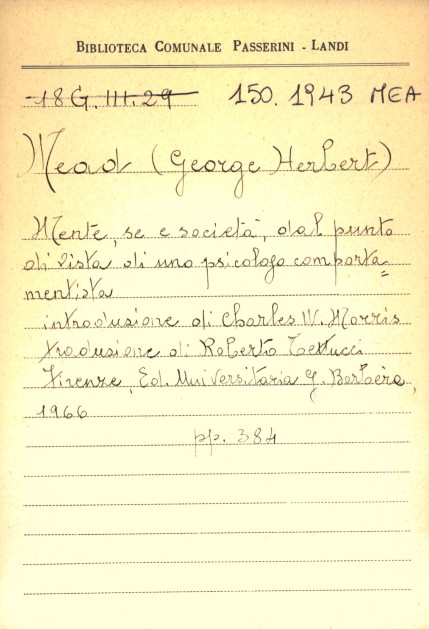 BIBLIOTECA COMUNALE PASSERINI - LANDI
18 G. III. 29 150.1943 MEA
Mead (George Herbert)
Mente, se e società, dal punto
di vista di uno psicologo comporta=
mentista
introduzione di Charles W. Morris
traduzione di Roberto Tettucci
Firenze, Ed. Universitaria G. Barbèra,
1966
pp. 384